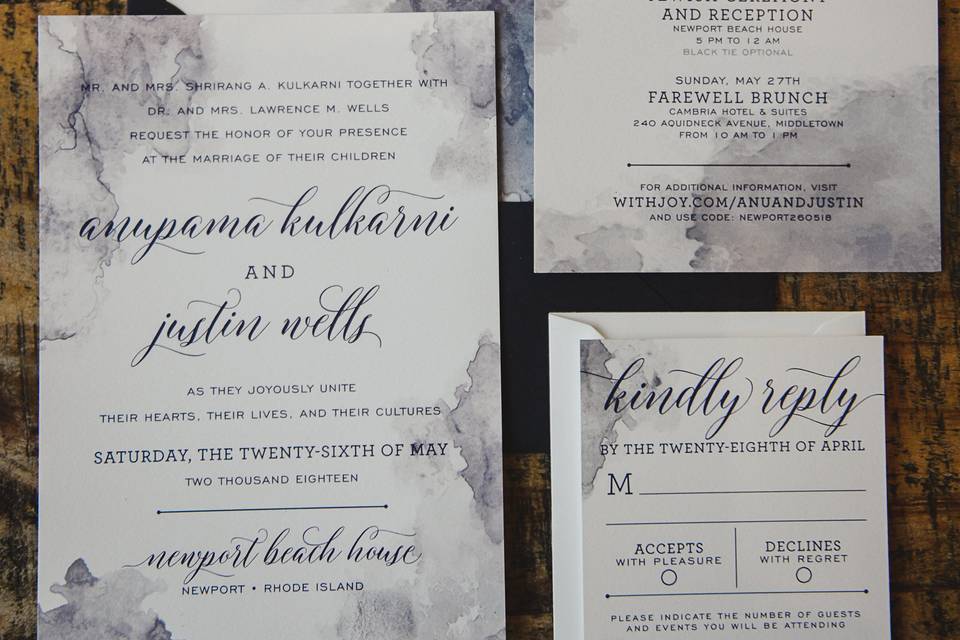 MR. AND MRS. SHRIRANG A. KULKARNI TOGETHER WITH
DR. AND MRS. LAWRENCE M. WELLS
REQUEST THE HONOR OF YOUR PRESENCE
AT THE MARRIAGE OF THEIR CHILDREN
anupama kulkarni
AND
justin wells
AS THEY JOYOUSLY UNITE
THEIR HEARTS, THEIR LIVES, AND THEIR CULTURES
SATURDAY, THE TWENTY-SIXTH OF MAY
TWO THOUSAND EIGHTEEN
newport beach house
NEWPORT • RHODE ISLAND
JEWISH CEREMONY
AND RECEPTION
NEWPORT BEACH HOUSE
5 PM TO 12 AM
BLACK TIE OPTIONAL
SUNDAY, MAY 27TH
FAREWELL BRUNCH
CAMBRIA HOTEL & SUITES
240 AQUIDNECK AVENUE, MIDDLETOWN
FROM 10 AM TO 1 PM
FOR ADDITIONAL INFORMATION, VISIT
WITHJOY.COM/ANUANDJUSTIN
AND USE CODE: NEWPORT260518
kindly reply
BY THE TWENTY-EIGHTH OF APRIL
M
ACCEPTS
WITH PLEASURE
DECLINES
WITH REGRET
PLEASE INDICATE THE NUMBER OF GUESTS
AND EVENTS YOU WILL BE ATTENDING